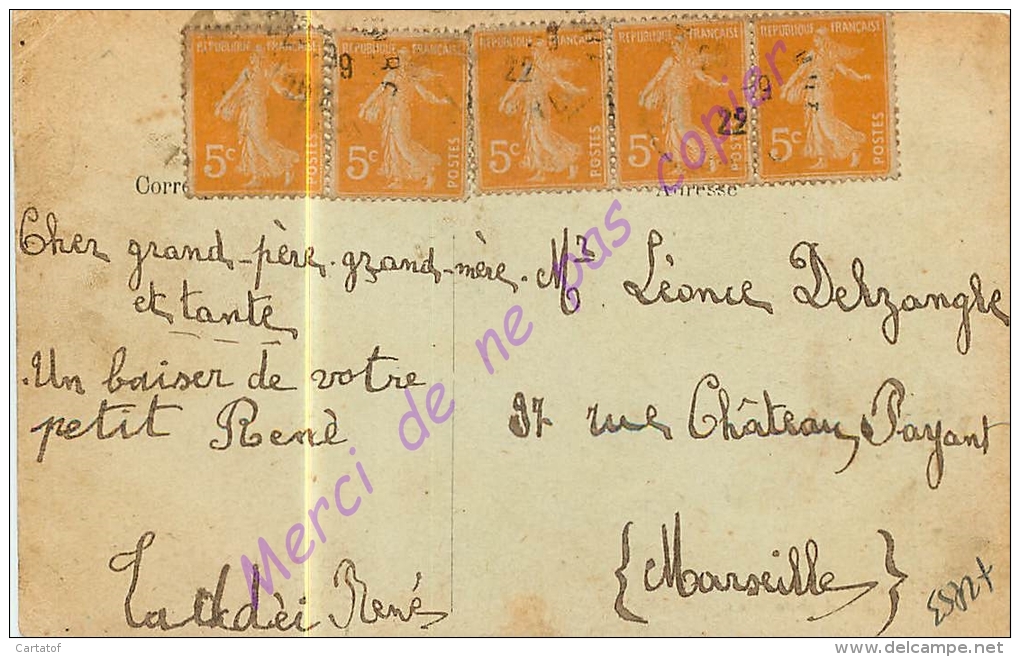 RÉPUBLIQUE FRANÇAISE RÉPUBLIQUE FRANÇAISE RÉPUBLIQUE FRANÇAISE RÉPUBLIQUE FRANÇAISE RÉPUBLIQUE FRANÇAISE
5c POSTES 5c POSTES 5c POSTES 5c POSTES 5c POSTES
22
Adresse
Cher grand-père. grand-mère.
et tante
Un baiser de votre
petit René
Taddèi René
Mr Léonce Delzangle
37 rue Château Payant
{Marseille}
Merci de ne pas copier
Cartatof
www.delcampe.net